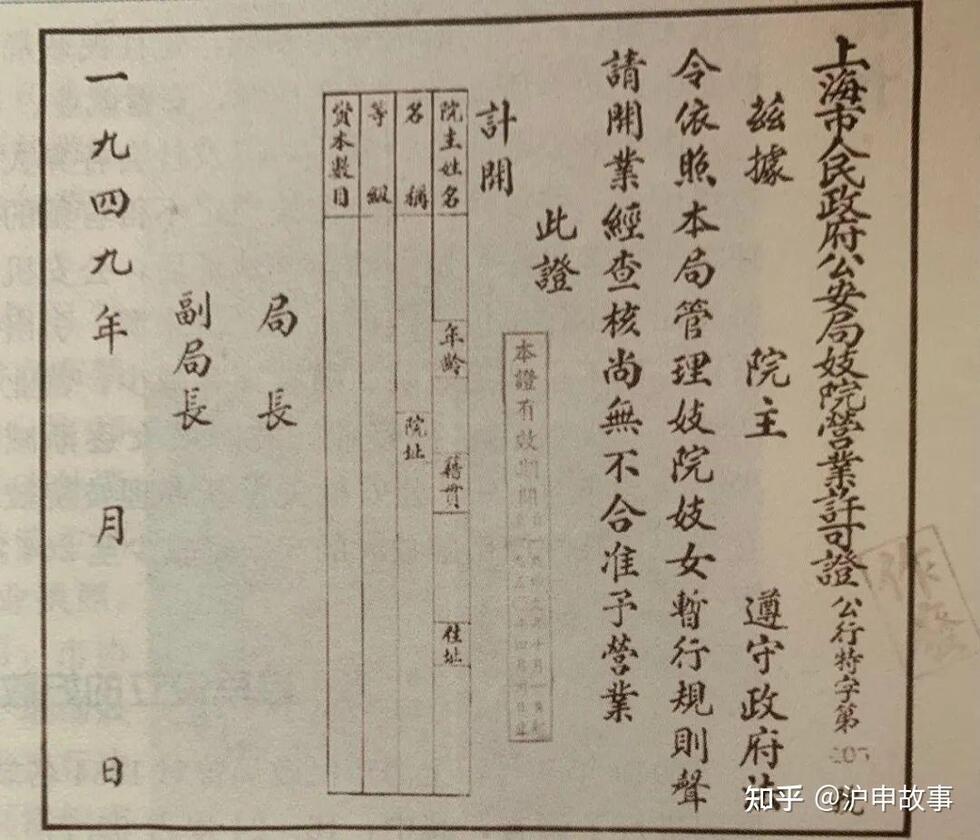 上海市人民政府公安局妓院營業許可證 公行特字第 號
茲據 院主 遵守政府法
令依照本局管理妓院妓女暫行規則聲
請開業經查核尚無不合准予營業
此證
本證有效期間
計開
院主姓名 年齡 籍貫 住址
名稱 院址
等級
資本數目
局長
副局長
一九四九年 月 日
知乎 @沪申故事